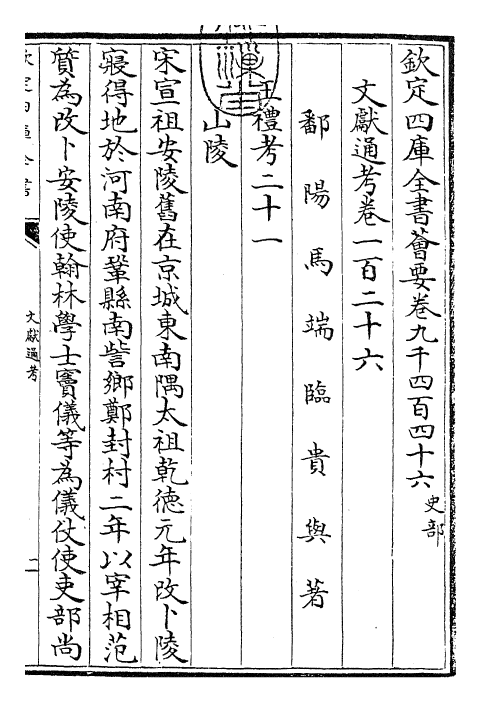 欽定四庫全書薈要卷九千四百四十六史部
文獻通考卷一百二十六
鄱陽馬端臨貴與著
王禮考二十一
山陵
宋宣祖安陵舊在京城東南隅太祖乾德元年改卜陵
寢得地於河南府鞏縣南訾鄉鄭封村二年以宰相范
質為改卜安陵使翰林學士竇儀等為儀仗使吏部尚
文獻通考
二